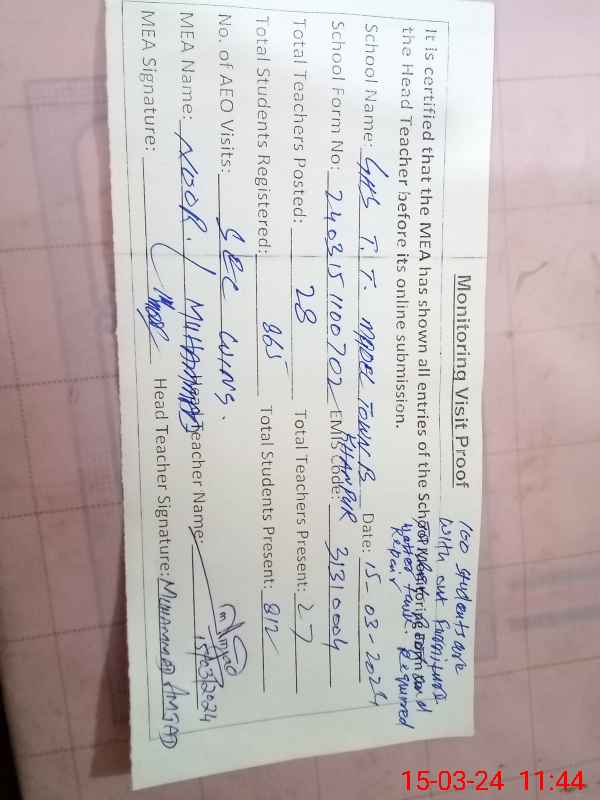 Monitoring Visit Proof
100 students are
with out furniture
It is certified that the MEA has shown all entries of the School Monitoring Form and
the Head Teacher before its online submission.
water tank. Required
Repair
School Name: GHS T.T. MODEL TOWN B Date: 15-03-2024
KHANPUR
School Form No: 2403151100702 EMIS Code: 31310004
Total Teachers Posted: 28 Total Teachers Present: 27
Total Students Registered: 865 Total Students Present: 812
No. of AEO Visits: SEC WING.
MEA Name: NOOR MUHAMMAD Head Teacher Name:
15/03/2024
MEA Signature: Head Teacher Signature: MUHAMMAD AMJAD
15-03-24 11:44